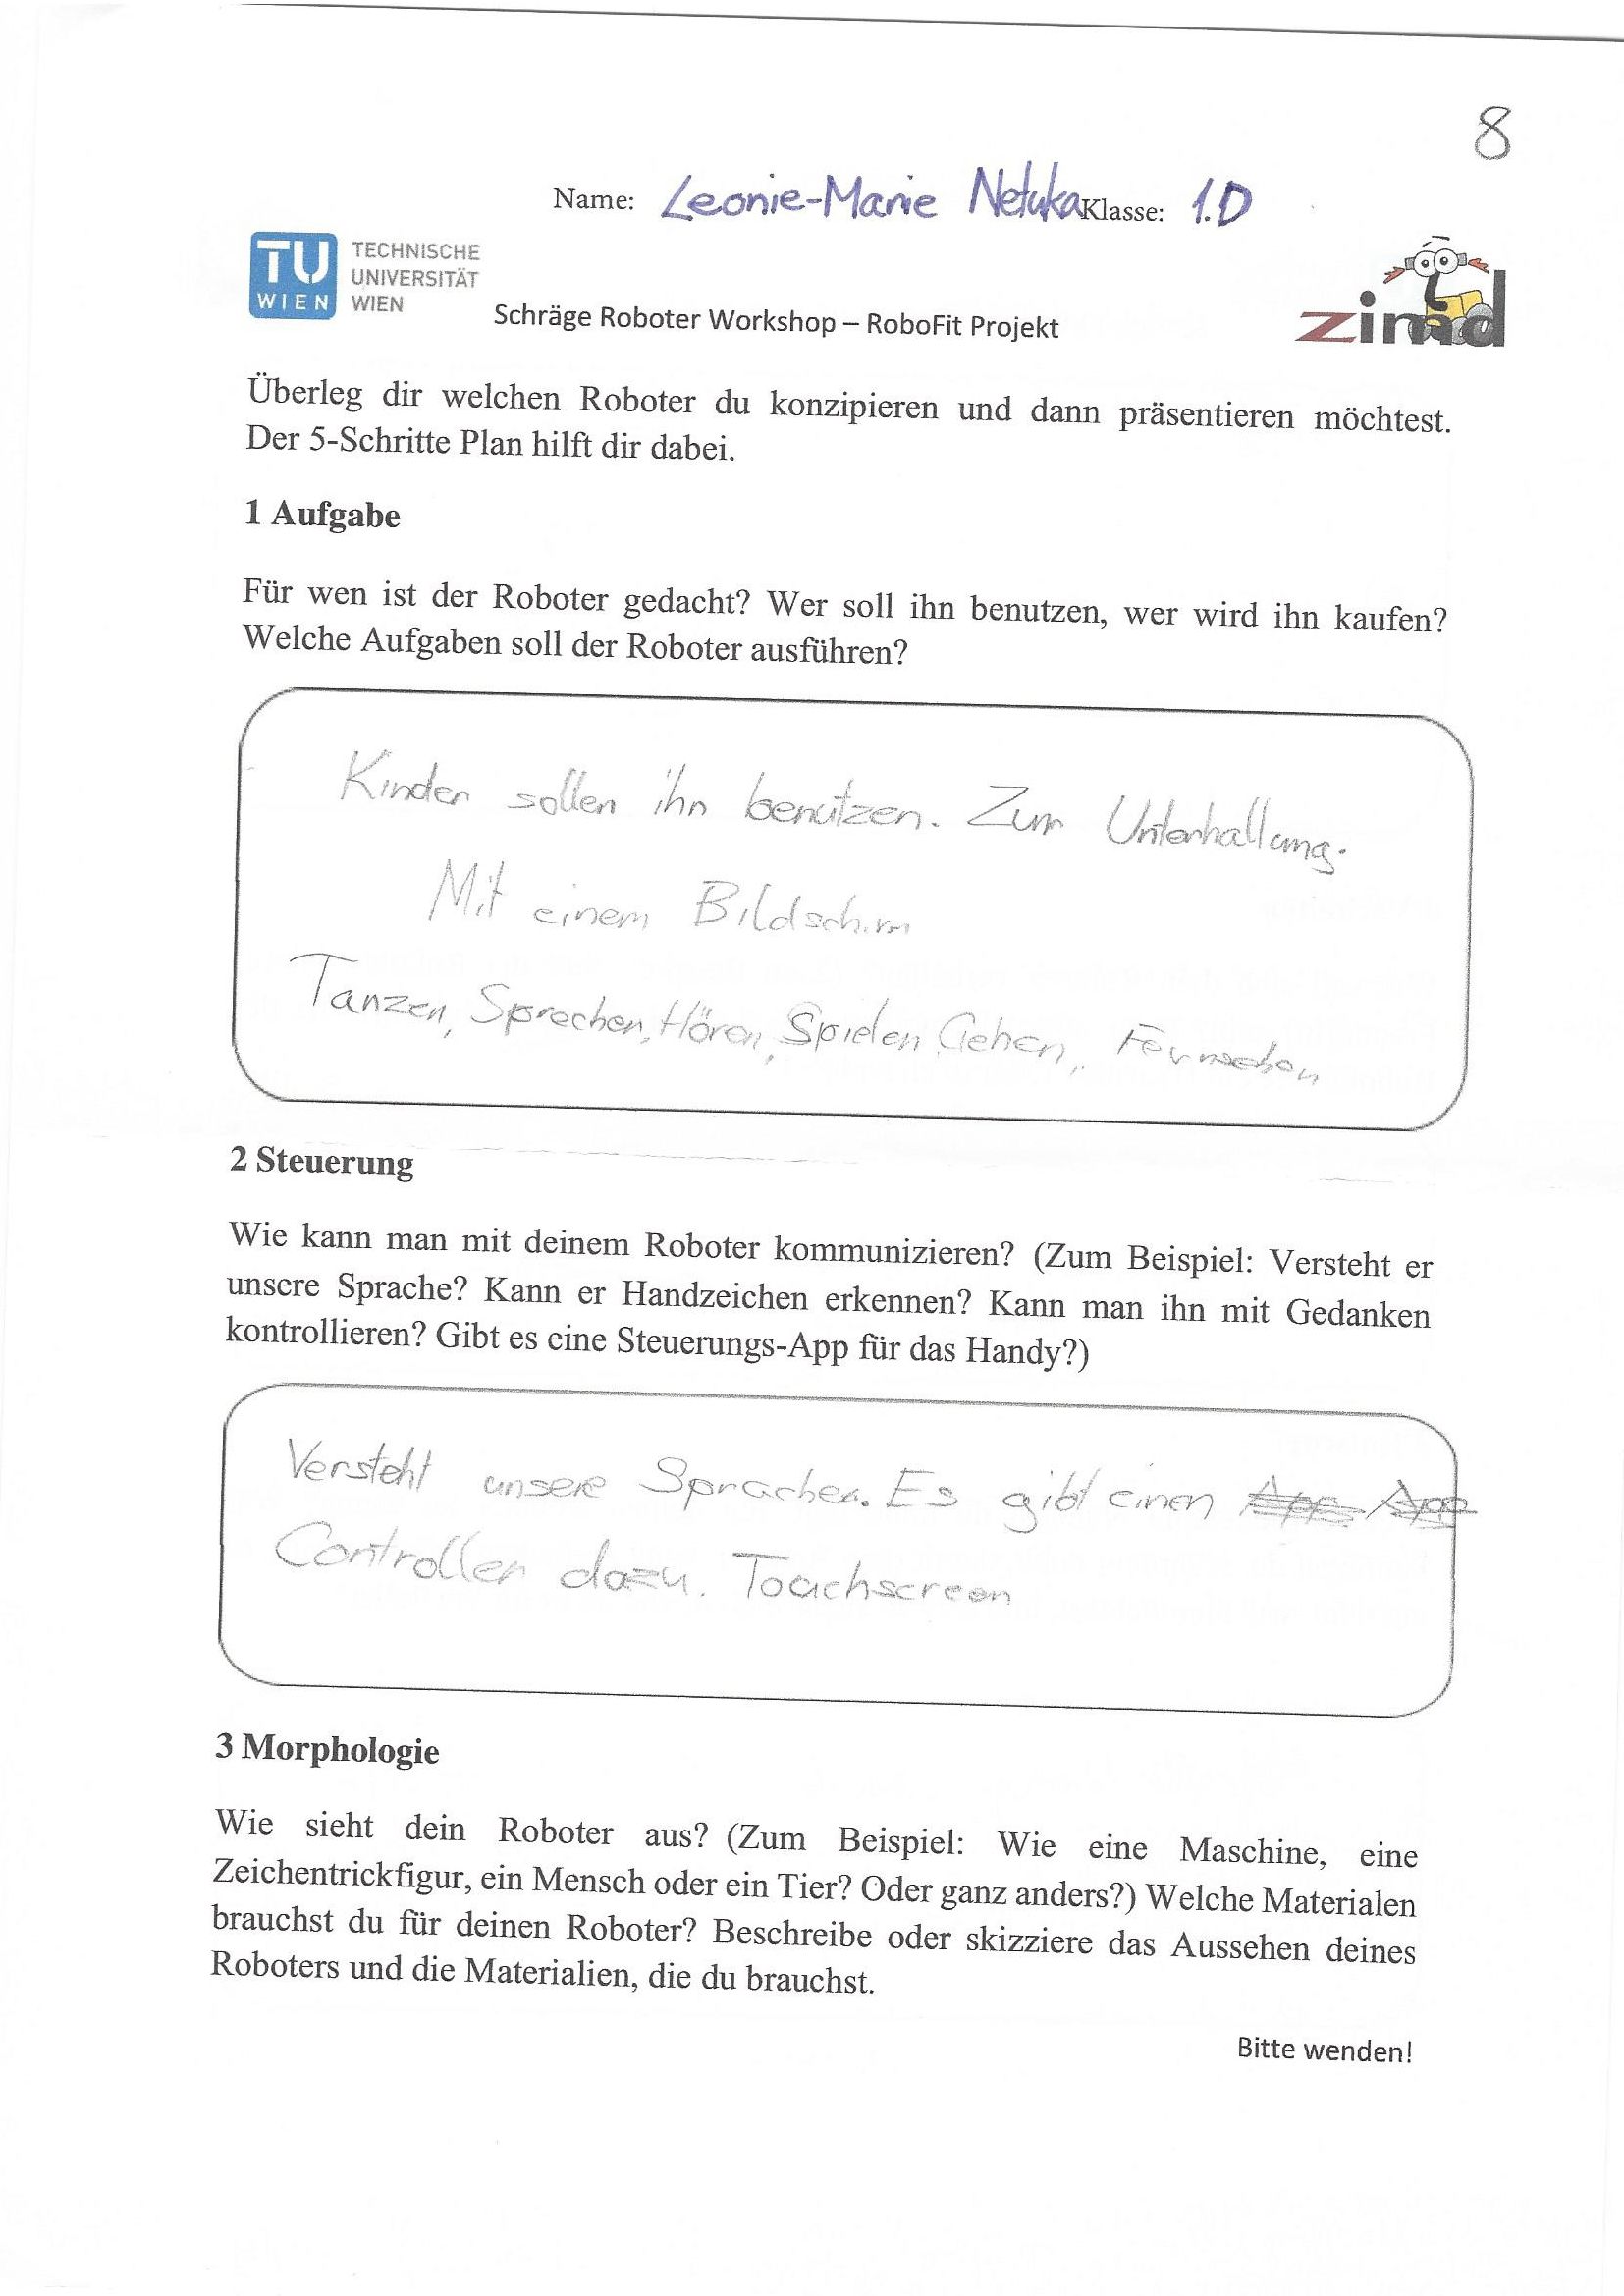 8
Name: Leonie-Marie Netuka Klasse: 1.D
TU WIEN TECHNISCHE UNIVERSITÄT WIEN
Schräge Roboter Workshop – RoboFit Projekt
zimd
Überleg dir welchen Roboter du konzipieren und dann präsentieren möchtest.
Der 5-Schritte Plan hilft dir dabei.
1 Aufgabe
Für wen ist der Roboter gedacht? Wer soll ihn benutzen, wer wird ihn kaufen?
Welche Aufgaben soll der Roboter ausführen?
Kinder sollen ihn benützen. Zum Unterhaltung.
Mit einem Bildschirm
Tanzen, Sprechen, Hören, Spielen, Gehen, Fernsehen
2 Steuerung
Wie kann man mit deinem Roboter kommunizieren? (Zum Beispiel: Versteht er
unsere Sprache? Kann er Handzeichen erkennen? Kann man ihn mit Gedanken
kontrollieren? Gibt es eine Steuerungs-App für das Handy?)
Versteht unsere Sprachen. Es gibt einen App App
Controller dazu. Touchscreen
3 Morphologie
Wie sieht dein Roboter aus? (Zum Beispiel: Wie eine Maschine, eine
Zeichentrickfigur, ein Mensch oder ein Tier? Oder ganz anders?) Welche Materialen
brauchst du für deinen Roboter? Beschreibe oder skizziere das Aussehen deines
Roboters und die Materialien, die du brauchst.
Bitte wenden!